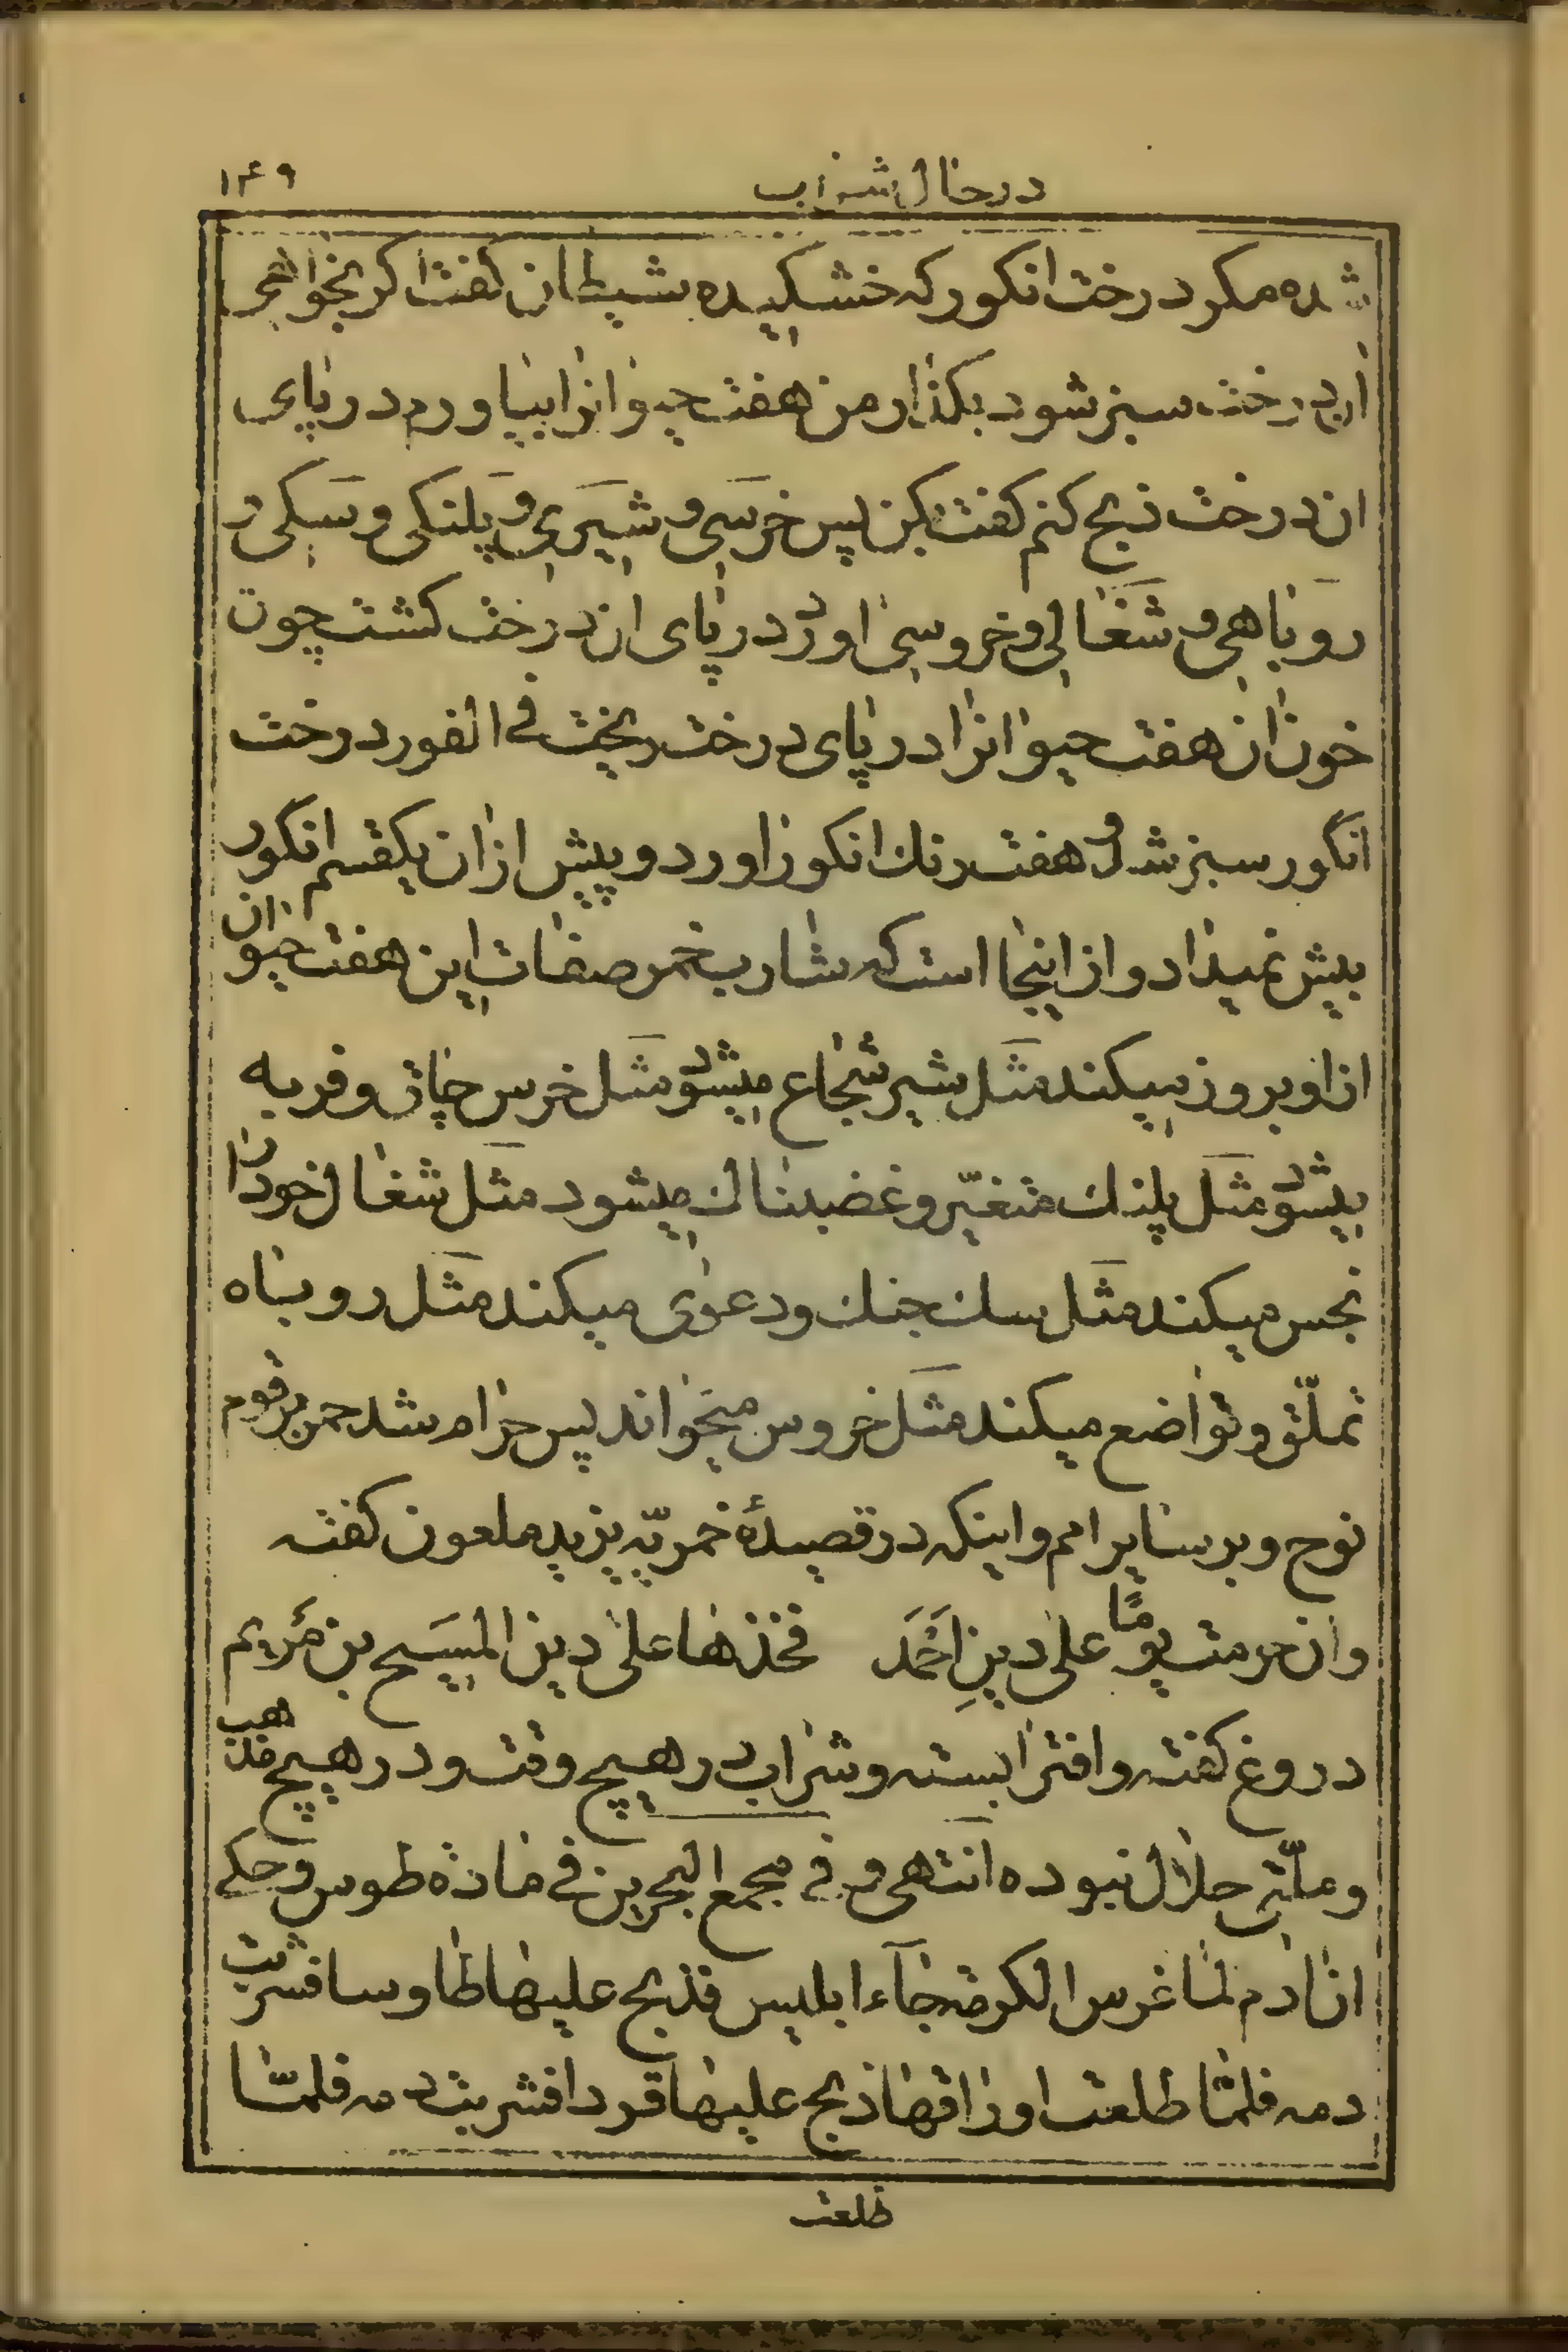 در حال شراب ۱۴۹
شده مکر درخت انکور که خشکیده شیطان کفت اکر بخواهی
این درخت سبز شود بکذار من هفت حیوانرا بیاورم در پای
ان درخت ذبح کنم کفت بکن پس خرسی و شیری و پلنکی و سکی و
روباهی و شغالی و خروسی اورد در پای ان درخت کشت چون
خون ان هفت حیوانرا در پای درخت ریخت فی الفور درخت
انکور سبز شد و هفت رنك انکور اورد و پیش از ان یکقسم انکور
بیش نمیداد و از اینجا است که شارب خمر صفات این هفت حیوان
از او بروز میکند مثل شیر شجاع میشود مثل خرس چاق و فربه
میشود مثل پلنك متغیّر و غضبناك میشود مثل شغال خود را
نجس میکند مثل سك جنك و دعوی میکند مثل روباه
تملّق و تواضع میکند مثل خروس میخواند پس حرام شد خمر بر قوم
نوح و بر سایر امم و اینکه در قصیدهٔ خمریّه یزید ملعون کفته
وان حرمت یومًا علی دینِ اَحْمَدَ فخذها علی دین المسیح بن مریم
دروغ کفته و افترا بسته و شراب در هیچ وقت و در هیچ مذهب
و ملّتی حلال نبوده انتهی و فی مجمع البحرین فی مادة طوس و حکی
ان ادم لما غرس الکرمة جآء ابلیس فذبح علیها طاوسا فشربت
دمه فلمّا طلعت اوراقها ذبح علیها قردا فشربت دمه فلمّا
طلعت